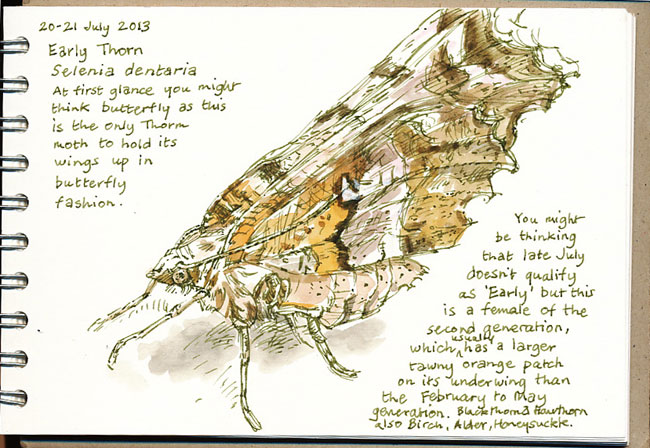 20-21 July 2013
Early Thorn
Selenia dentaria
At first glance you might
think butterfly as this
is the only Thorn
moth to hold its
wings up in
butterfly
fashion.
You might
be thinking
that late July
doesn't qualify
as 'Early' but this
is a female of the
second generation,
which usually has a larger
tawny orange patch
on its underwing than
the February to May
generation. Blackthorn & Hawthorn
also Birch, Alder, Honeysuckle.